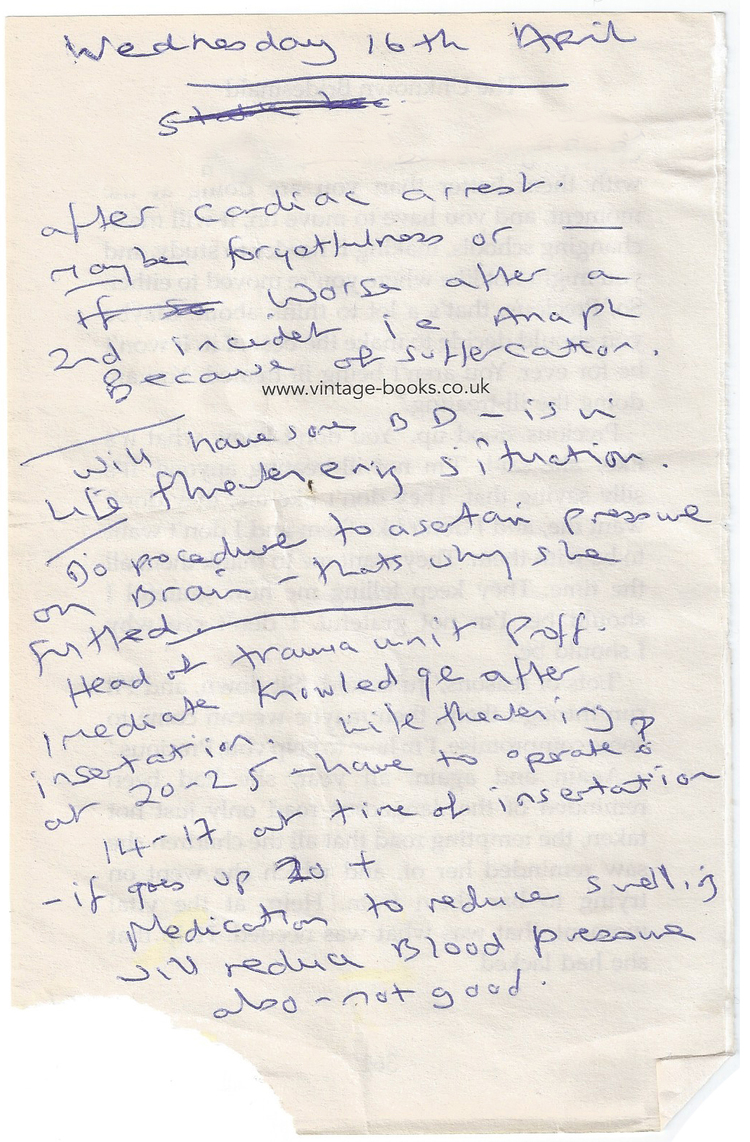 Wednesday 16th April
after cardiac arrest.
maybe forgetfulness or
If worse after a
2nd incident ie Anaph
Because of suffercation.
www.vintage-books.co.uk
will have on BD - is in
Life threatening situation.
Do procedure to asertain pressure
on Brain - thats why she
fitted.
Head of trauma unit Proff.
imediate knowledge after
insertation. Life theatening
at 20-25 - have to operate
14-17 at time of insertation
- if goes up 20+
Medication to reduce swelling
will reduce Blood pressure
also - not good.